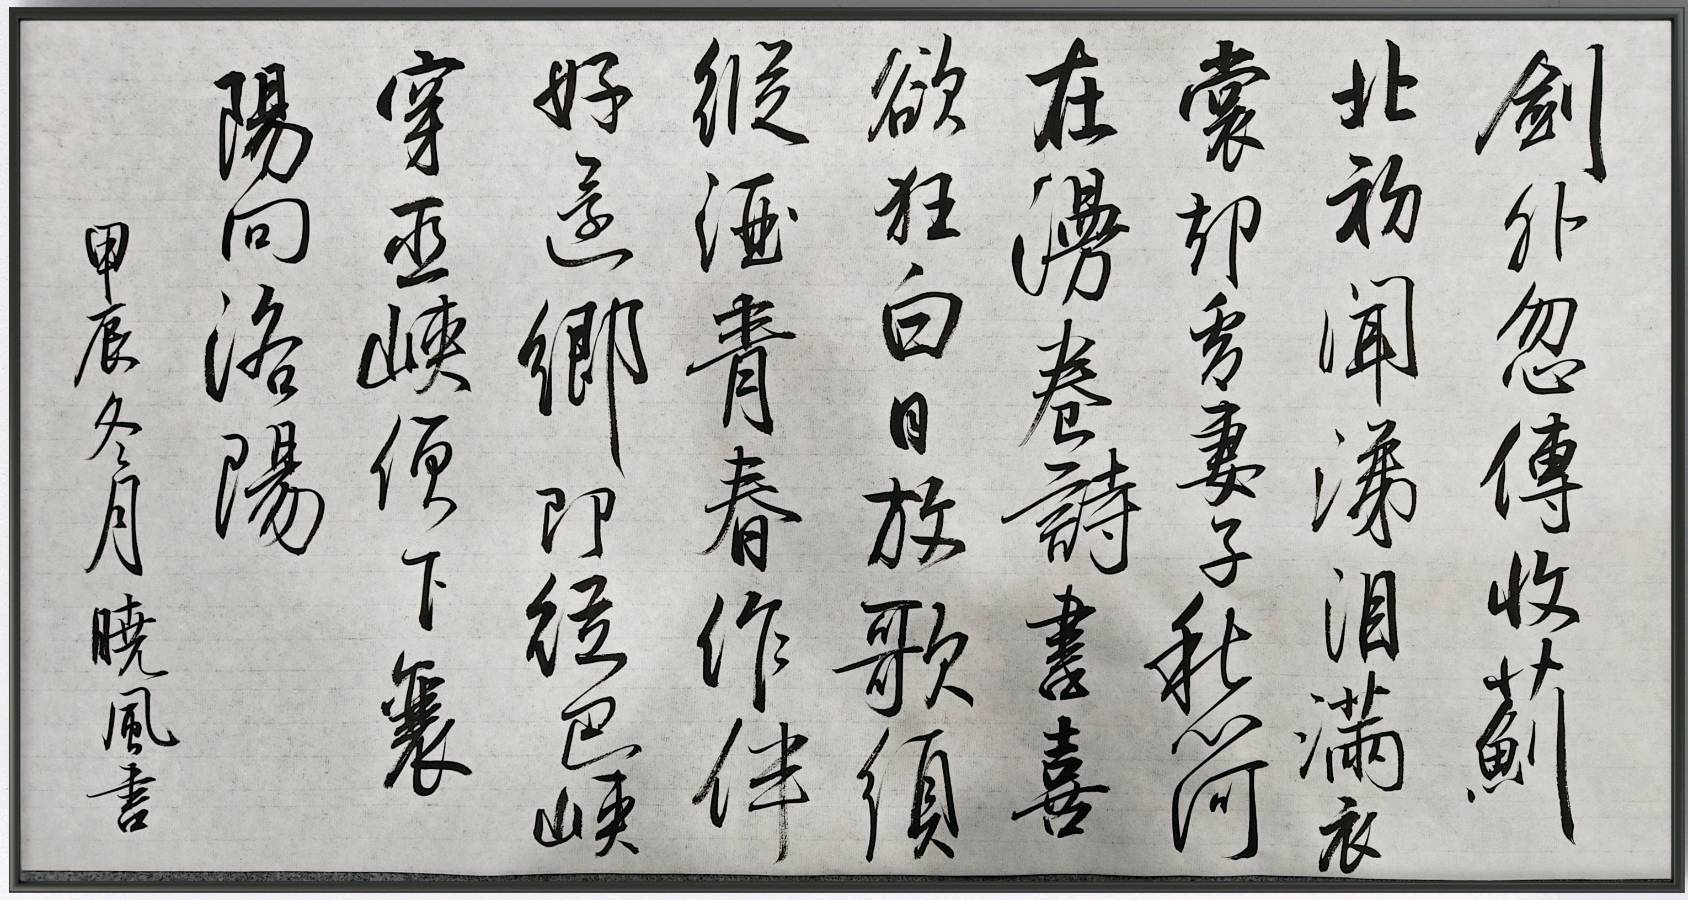 劍外忽傳收薊
北初聞涕淚滿衣
裳却看妻子愁何
在漫卷詩書喜
欲狂白日放歌須
縱酒青春作伴
好還鄉即從巴峽
穿巫峽便下襄
陽向洛陽
甲辰冬月曉風書